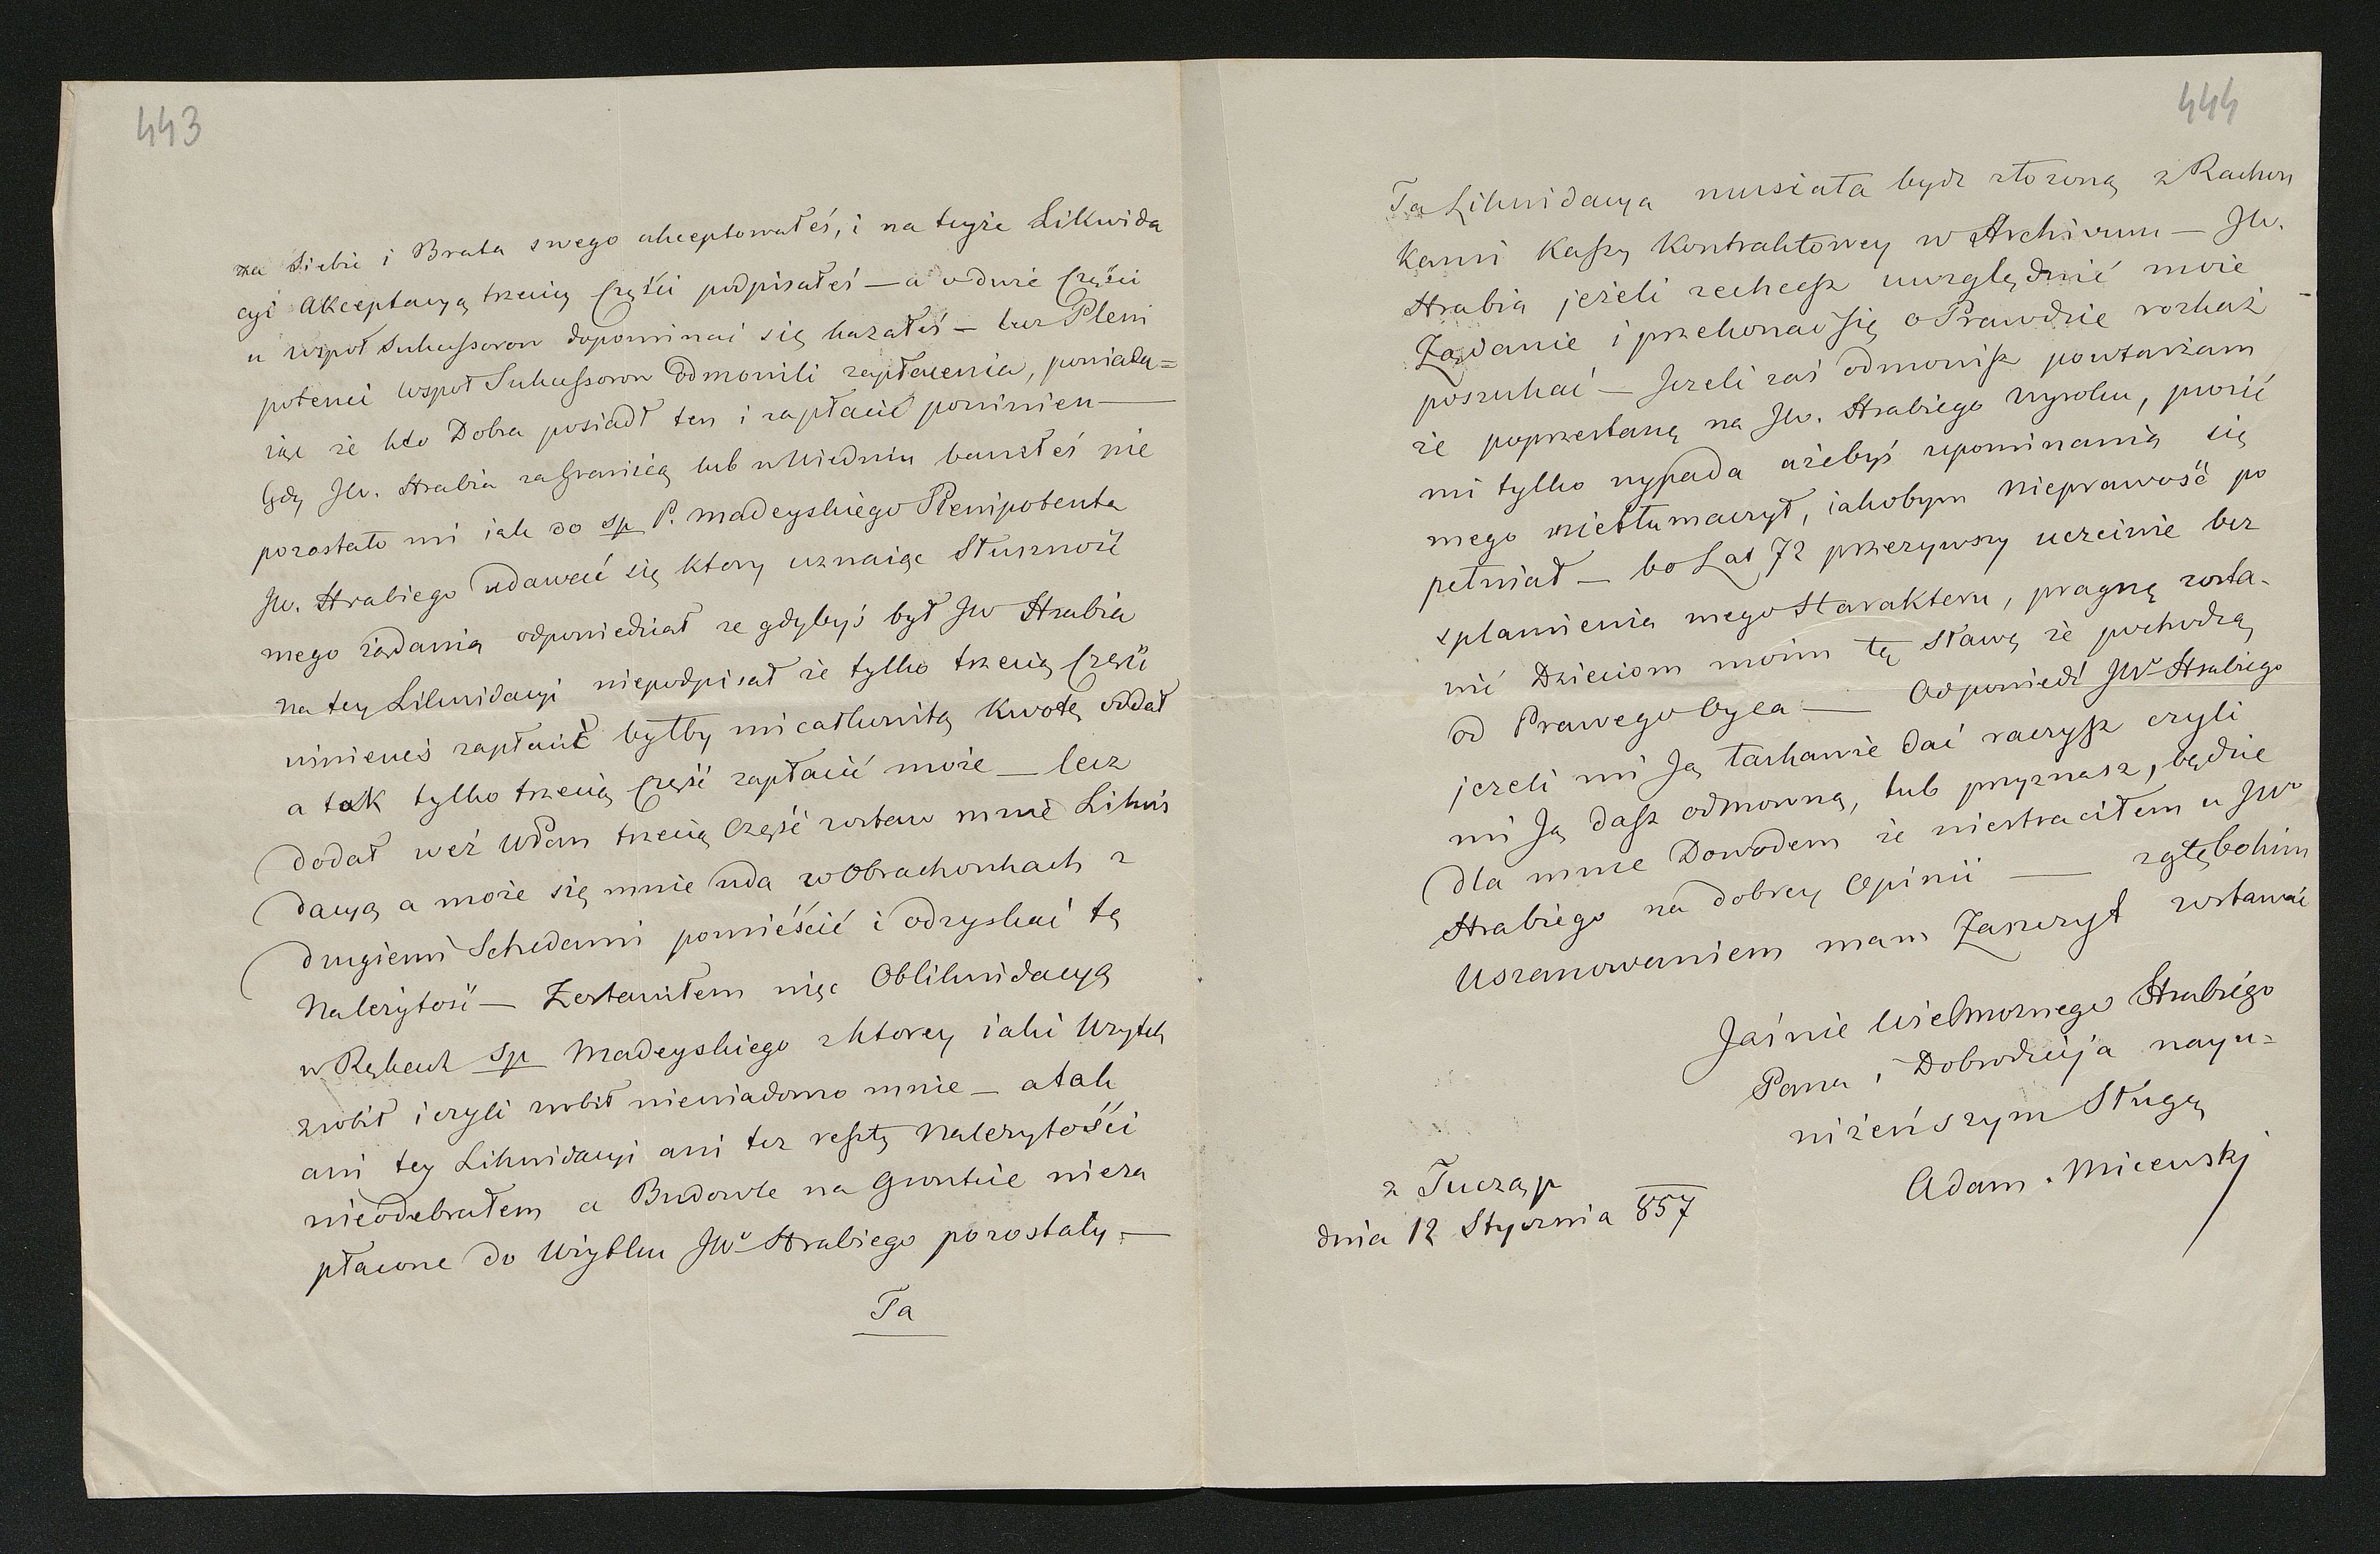 443
za siebie i Brata swego akceptowałeś, i na teyże Likwida
cyi Akceptacyą trzecią Części podpisałeś — a o dwie Części
u wspoł Sukcessorow dopominać się kazałeś — lecz Pleni
potenci wspoł Sukcessorow odmowili zapłacenia, powiada=
iąc że kto Dobra posiadł ten i zapłacić powinien —
Gdy JW. Hrabia za Granicą lub w Wiedniu bawiłeś nie
pozostało mi iak do sp P. Madeyskiego Plenipotenta
JW. Hrabiego udawać się ktory uznaiąc Słuszność
mego żądania odpowiedział ze gdybyś był JW Hrabia
na tey Likwidacyi niepodpisał że tylko trzecią Część
winieneś zapłacić byłby mi całkowitą Kwotę oddał
a tak tylko trzecią Część zapłacić może — lecz
dodał weź WPan trzecią Część zostaw mnie Likwi
dacyą a może się mnie uda w Obrachonkach z
drugiemi Schedami pomieścić i odzyskać tę
Nalezytość — Zostawiłem więc Oblikwidacyą
w Rękach sp Madeyskiego z ktorey iaki Uzytek
zrobił i czyli zrobił niewiadomo mnie — a tak
ani tey Likwidacyi ani tez reszty Nalezytości
nieodebrałem a Budowle na Gruntcie nieza
płacone do Użytku JWo Hrabiego pozostały —
Ta
444
Ta Likwidacya musiała bydz złozoną z Rachon
kami Kassy Kontraktowey w Archiwum — JW.
Hrabia jeżeli zechcesz uwzględnić moie
Ządanie i przekonać się o Prawdzie rozkaż
poszukać — Jezeli zaś odmowisz powtarzam
że poprzestanę na JW. Hrabiego wyroku, prosić
mi tylko wypada ażebyś upominania się
mego nietłumaczył, iakobym nieprawość po
pełniał — bo Lat 72 przezywszy uczciwie bez
splamienia mego Harakteru, pragnę zosta-
wić Dzieciom moim tę Sławę że pochodzą
od Prawego Oyca — Odpowiedź JWo Hrabiego
jezeli mi Ją łaskawie dać raczysz czyli
mi Ją dasz odmowną, lub przyznasz, będzie
dla mnie Dowodem że niestraciłem u JWo
Hrabiego na dobrey Opinii — z głębokim
Uszanowaniem mam Zaszczyt zostawać
Jaśnie Wielmoznego Hrabiego
Pana i Dobrodzieja nayu=
niżeńszym Sługą
Adam. Micewski
z Tuczap
dnia 12 Stycznia 857